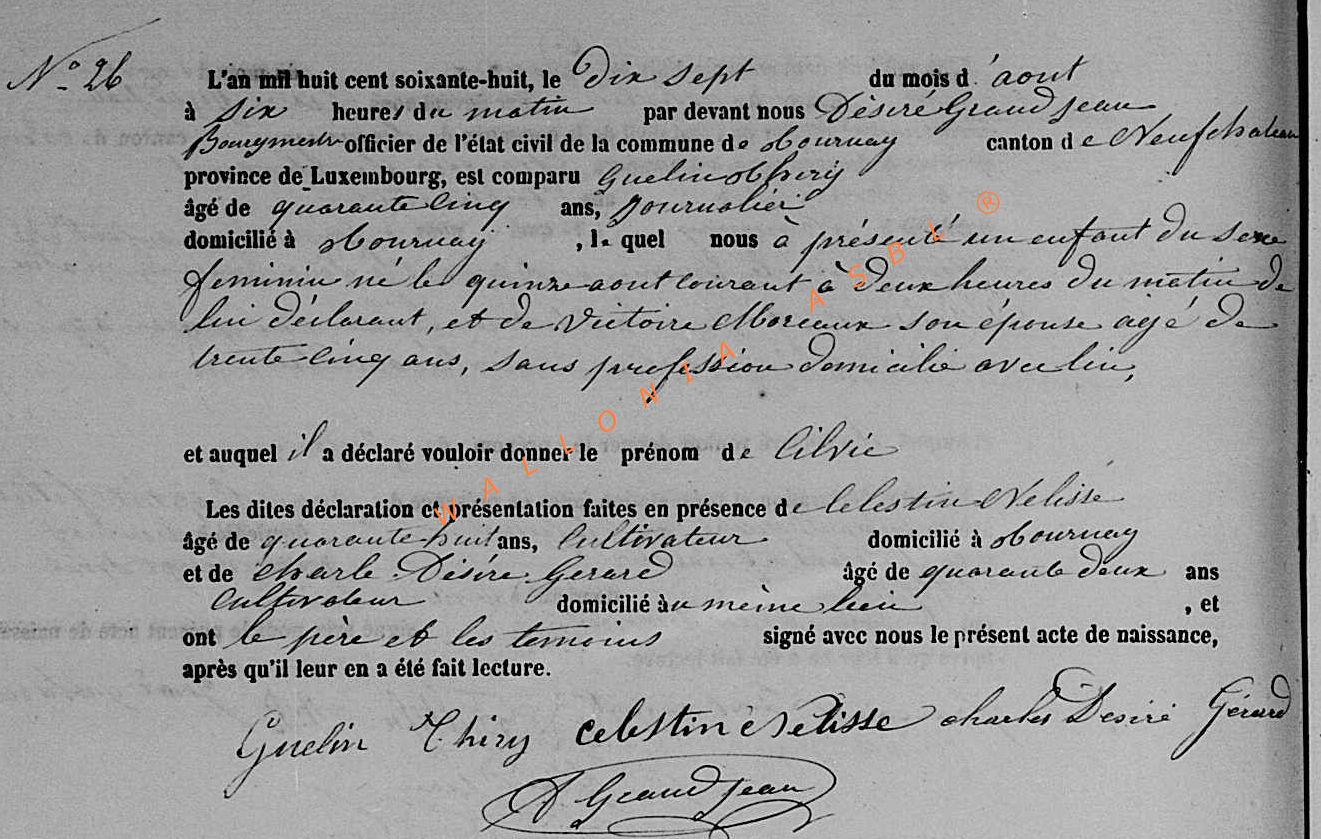 N° 26
L'an mil huit cent soixante-huit, le dix sept du mois d'aout
à six heures du matin par devant nous Dèsiré Grandjean
Bourgmestre officier de l'état civil de la commune de Tournay canton de Neufchateau
province de Luxembourg, est comparu Guelin Thiry
âgé de quarante cinq ans, Journalier
domicilié à Tournay, le quel nous à présenté un enfant du sexe
feminin né le quinze aout courant à deux heures du matin de
lui déclarant, et de Victoire Moreaux son épouse agé de
trente cinq ans, sans profession domicilié avec lui,
et auquel il a déclaré vouloir donner le prénom de Cilvie
Les dites déclaration et présentation faites en présence de Celestin Nelisse
âgé de quarante huit ans, Cultivateur domicilié à Tournay
et de Charle Désiré Gerard âgé de quarante deux ans
Cultivateur domicilié au même lieu, et
ont le père et les temoins signé avec nous le présent acte de naissance,
après qu'il leur en a été fait lecture.
Guelin Thiry celestin Nelisse charles Desiré Gérard
D Grandjean
WALLONIA ASBL ®